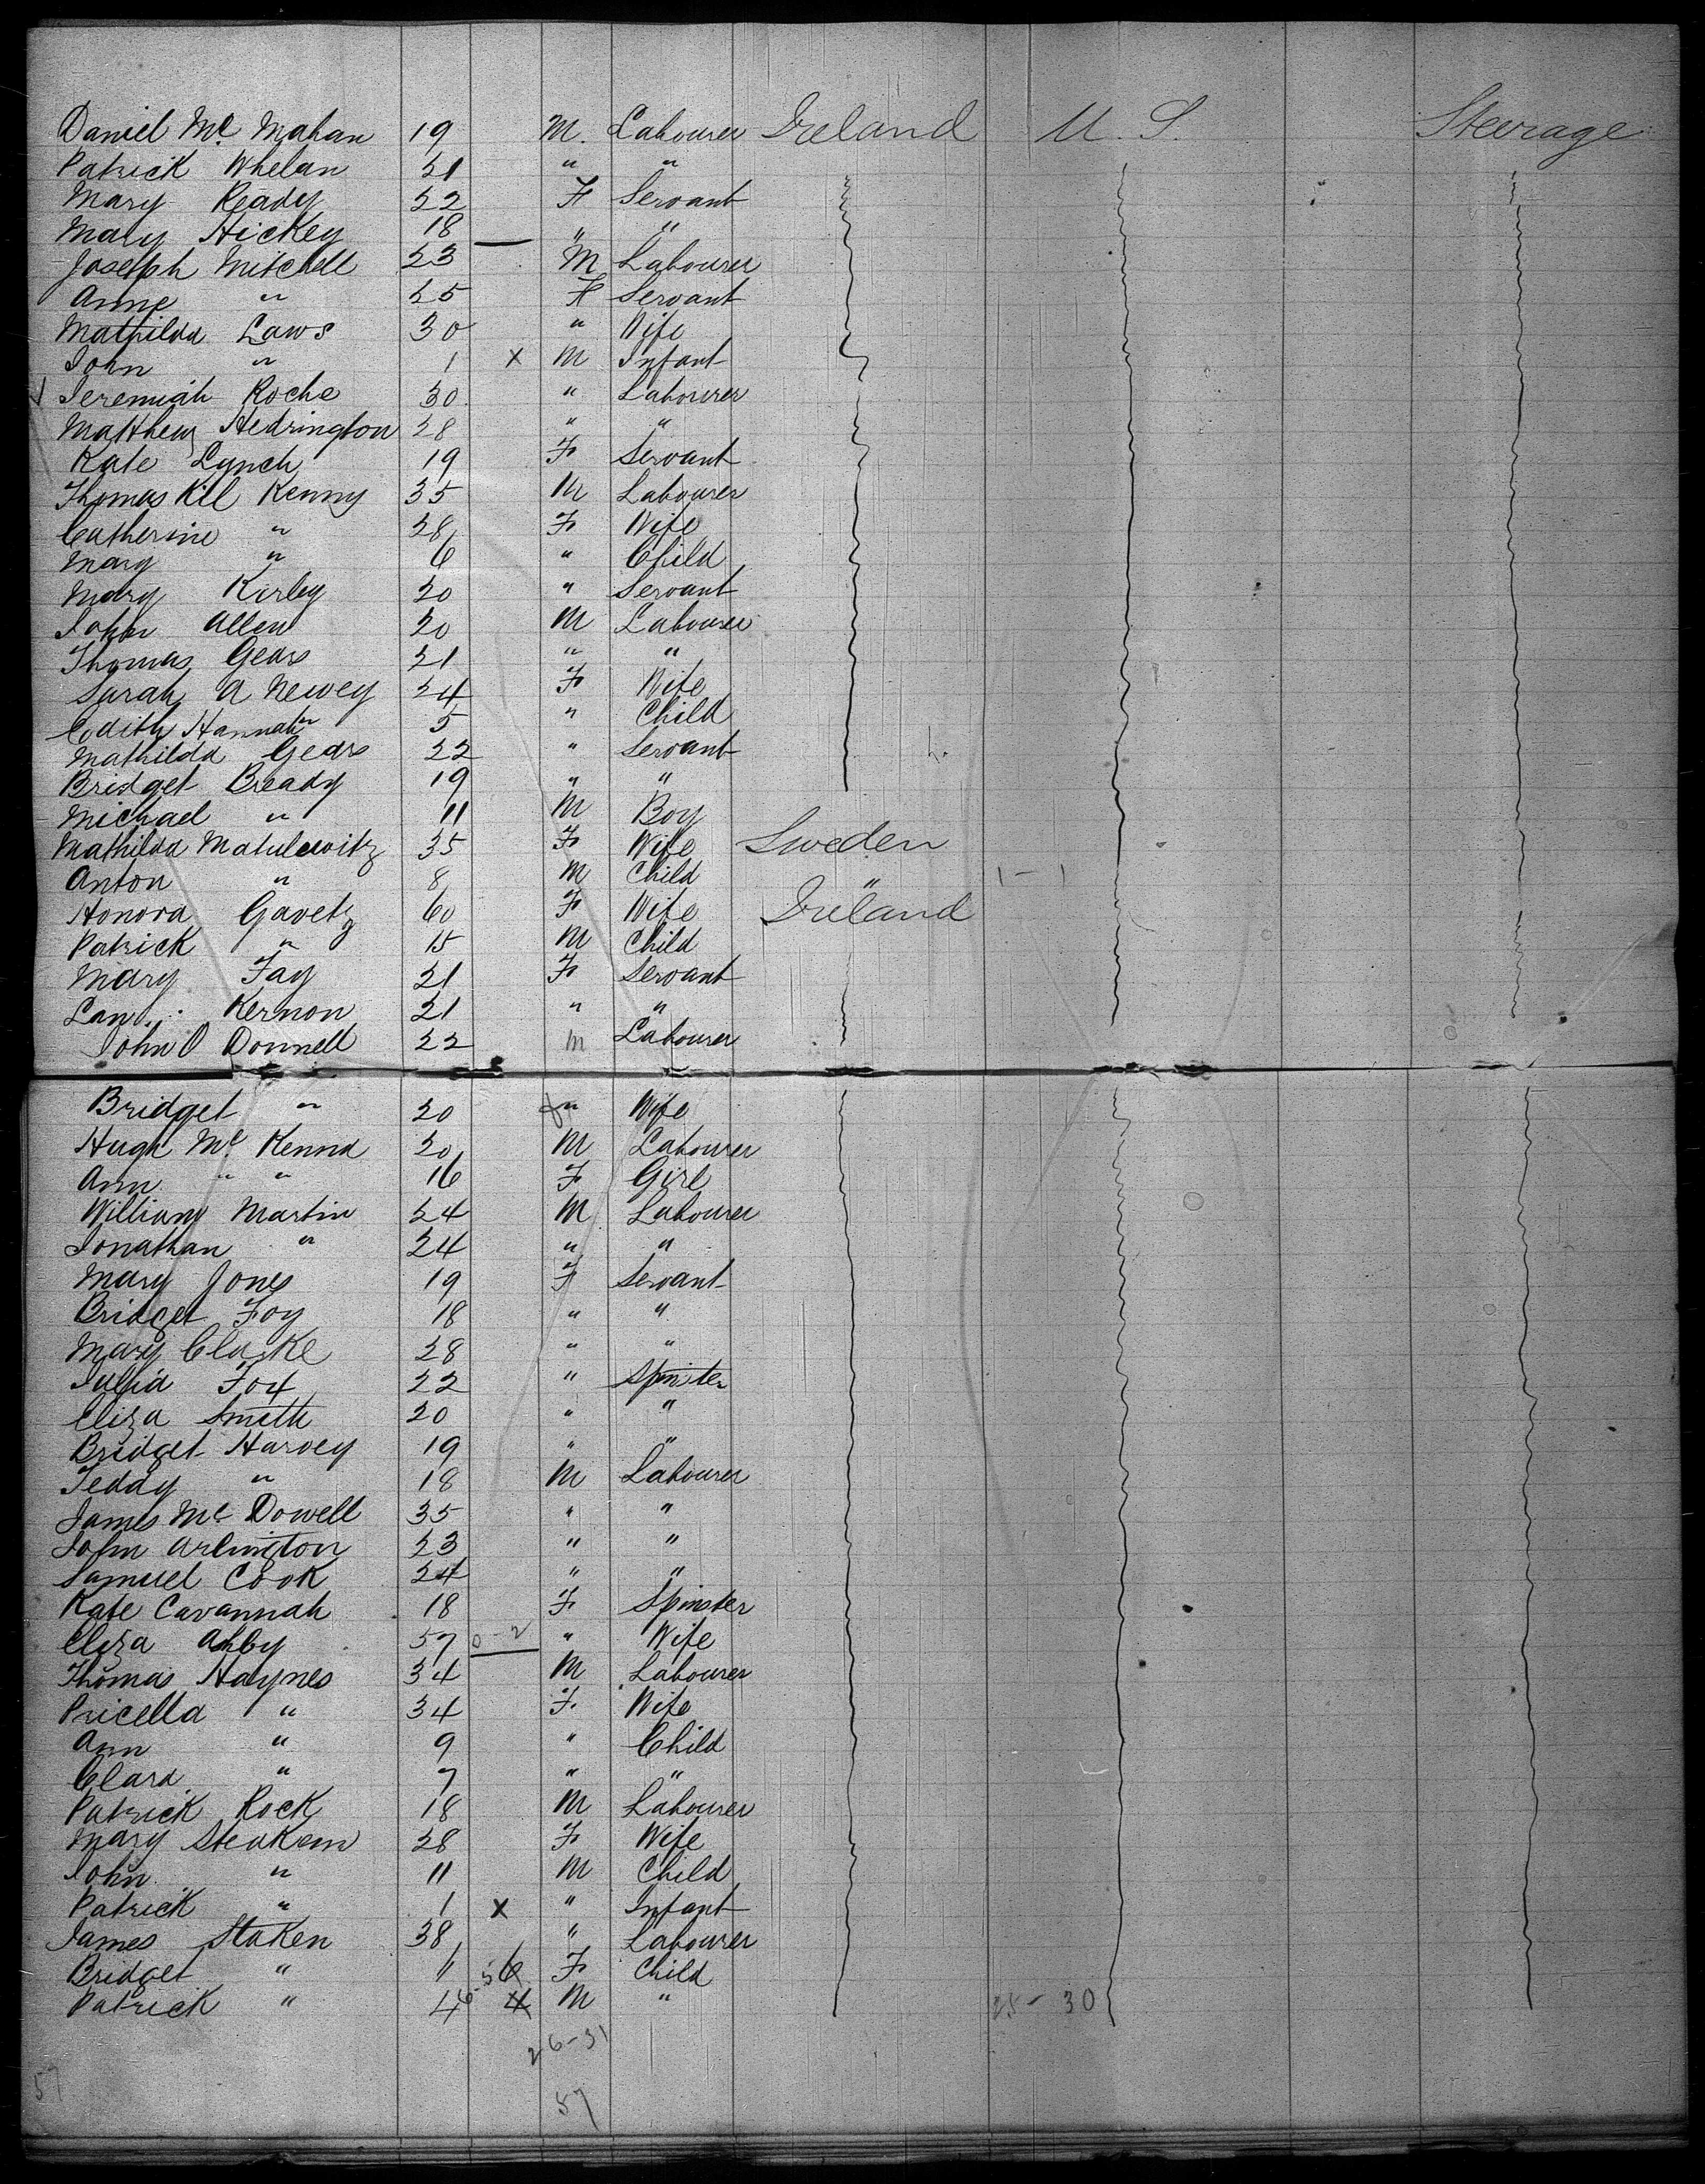 Daniel Mc Mahan 19 M. Labourer Ireland U. S. Steerage
Patrick Whelan 21 " "
Mary Ready 22 F Servant
Mary Hickey 18 " "
Joseph Mitchell 23 M Labourer
Anne " 25 F Servant
Mathilda Laws 30 " Wife
John " 1 x M Infant
Jeremiah Roche 30 " Labourer
Matthew Hedrington 28 " "
Kate Lynch 19 F Servant
Thomas Kil Kenny 35 M Labourer
Catherine " 28 F Wife
Mary " 6 " Child
Mary Kirby 20 " Servant
John Allen 20 M Labourer
Thomas Gears 21 " "
Sarah A Newey 24 F Wife
Edith Hannah " 5 " Child
Mathilda Gears 22 " Servant
Bridget Bready 19 " "
Michael " 11 M Boy
Mathilda Matulewitz 35 F Wife Sweden
Anton " 8 M Child " 1 - 1
Honora Gavetz 60 F Wife Ireland
Patrick " 15 M Child
Mary Fay 21 F Servant
Kernon 21 " "
John O Donnell 22 M Labourer
Bridget " 20 " Wife
Hugh Mc Kenna 20 M Labourer
Ann " " 16 F Girl
William Martin 24 M Labourer
Jonathan " 24 " "
Mary Jones 19 F Servant
Bridget Foy 18 " "
Mary Clarke 28 " "
Julia Fox 22 " Spinster
Eliza Smith 20 " "
Bridget Harvey 19 " "
Teddy " 18 M Labourer
James Mc Dowell 35 " "
John Arlington 23 " "
Samuel Cook 24 " "
Kate Cavannah 18 F Spinster
Eliza Ahby 57 0-2 " Wife
Thomas Haynes 34 M Labourer
Pricella " 34 F. Wife
Ann " 9 " Child
Clara " 7 " "
Patrick Rock 18 M Labourer
Mary Steakem 28 F Wife
John " 11 M Child
Patrick " 1 x " Infant
James Staken 38 " Labourer
Bridget " 11 F Child
Patrick " 4 4 M " 25 - 30
26-31
57 57